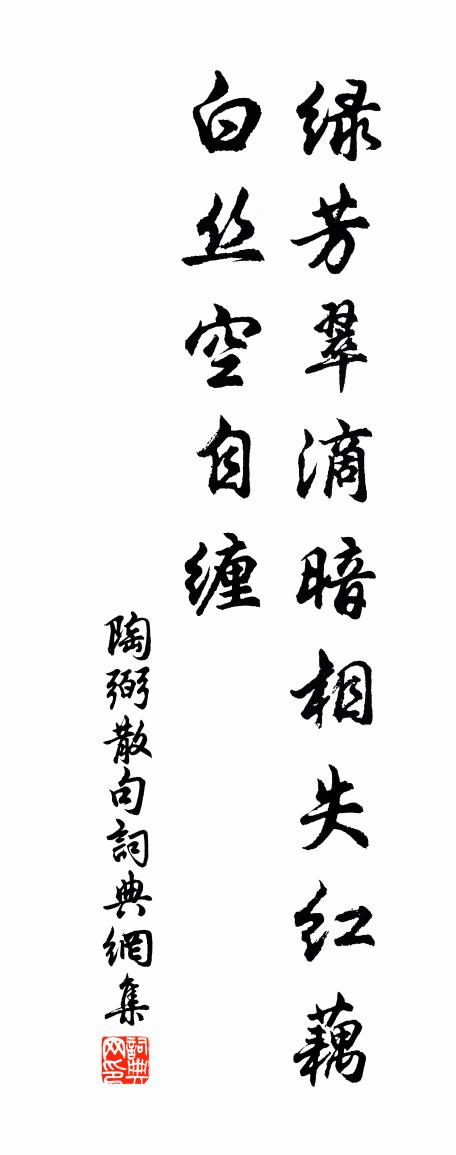 绿芳翠滴暗相失红藕
白丝空自缠
陶弼散句詞典網集
詞典网印